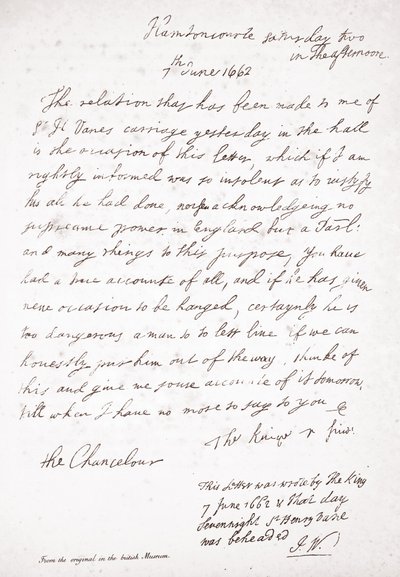 Hamtoncourte saturday two
in the afternoon
7th June 1662
The relation that has been made to me of
Sr H: Vanes carriage yesterday in the hall
is the occasion of this letter, which if I am
rightly informed was so insolent as to iustify
his all he had done, acknowledgeing no
supreame power in England but a Parl:
and many things to this purpose, You have
had a true accounte of all, and if he has given
new occasion to be hanged, certaynly he is
too dangerous a man to lett live if we can
honestly put him out of the way, thinke of
this and give me some accounte of it tomorrow,
till when I have no more to say to you
The Kinge
the Chancelour
This Letter was wrote by The King
7 June 1662 & that day
Sevennight Sr Henry Vane
was beheaded J. W.
From the original in the british Museum.